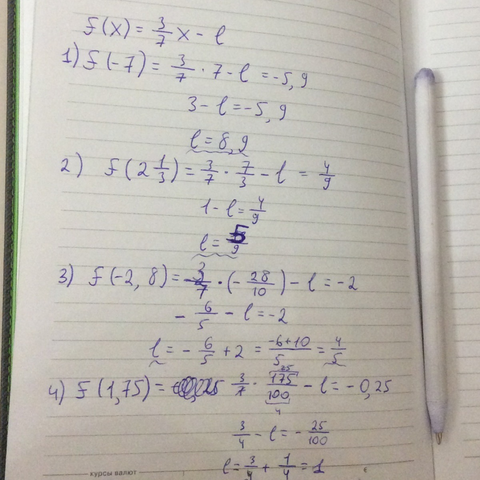 f(x) = 3/7 x - l
1) f(-7) = 3/7 · 7 - l = -5,9
3 - l = -5,9
l = 8,9
2) f(2 1/3) = 3/7 · 7/3 - l = 4/9
1 - l = 4/9
l = 5/9
3) f(-2,8) = 3/7 · (-28/10) - l = -2
- 6/5 - l = -2
l = - 6/5 + 2 = -6+10/5 = 4/5
4) f(1,75) = 3/7 · 175/100 - l = -0,25
25
4
3/4 - l = - 25/100
l = 3/4 + 1/4 = 1
курсы валют